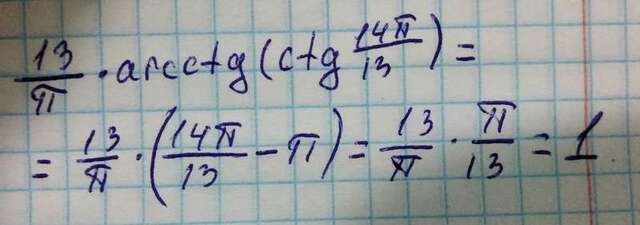 13/π · arcctg(ctg 14π/13) =
= 13/π · (14π/13 − π) = 13/π · π/13 = 1